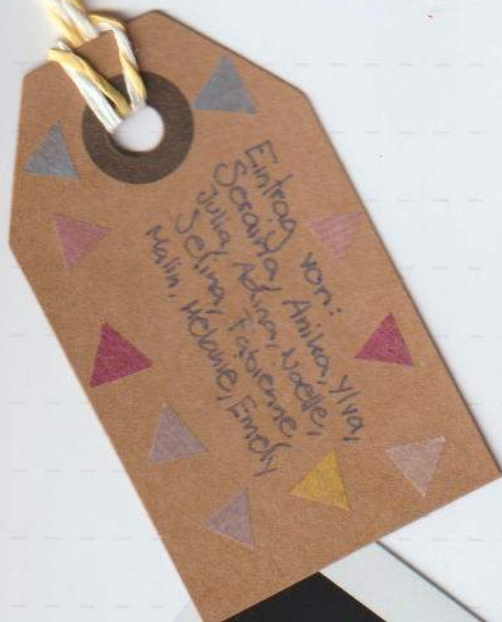 Eintrag von:
Seraina, Anika, Ylva,
Julia, Adina, Noelle,
Selina, Fabienne,
Malin, Melanie, Emely